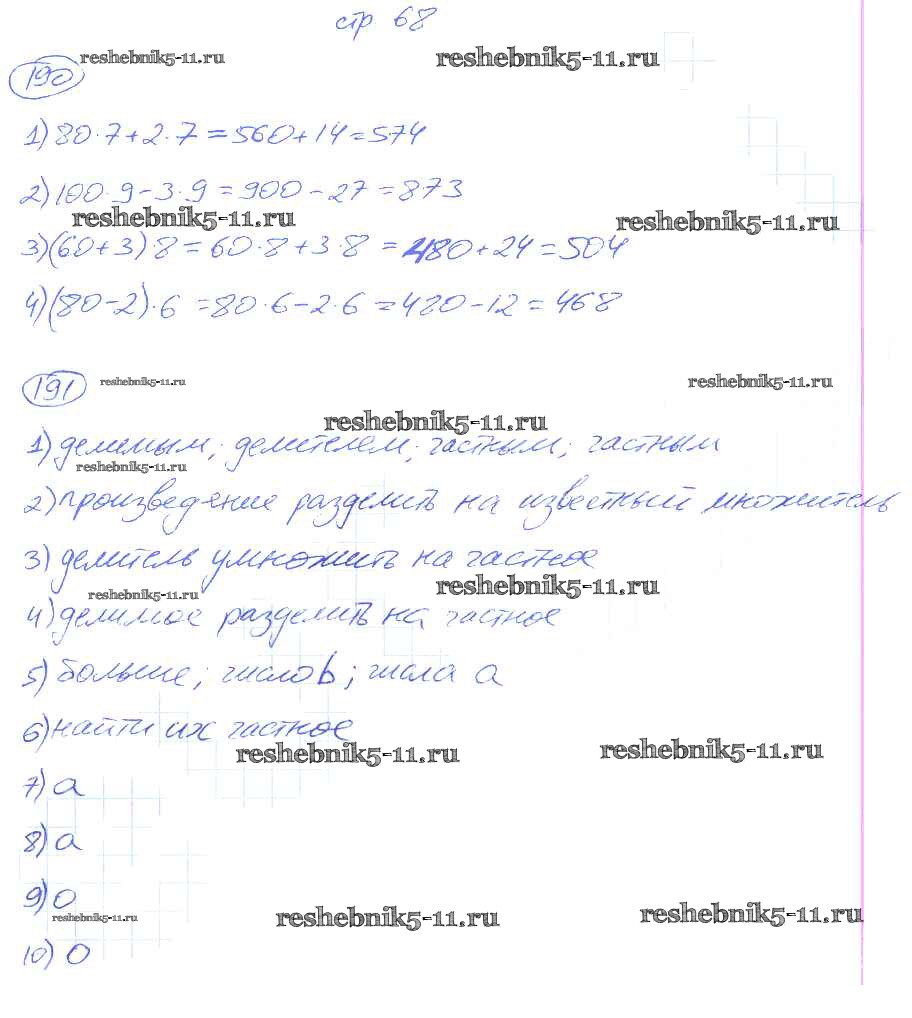 стр 68
190 reshebnik5-11.ru reshebnik5-11.ru
1) 80·7+2·7=560+14=574
2) 100·9-3·9=900-27=873
reshebnik5-11.ru reshebnik5-11.ru
3) (60+3)·8=60·8+3·8=480+24=504
4) (80-2)·6=80·6-2·6=480-12=468
191 reshebnik5-11.ru reshebnik5-11.ru
reshebnik5-11.ru
1) делимым; делителем; частным; частным
reshebnik5-11.ru
2) произведение разделить на известный множитель
3) делитель умножить на частное
reshebnik5-11.ru reshebnik5-11.ru
4) делимое разделить на частное
5) больше; число b; числа a
6) найти их частное
reshebnik5-11.ru reshebnik5-11.ru
7) a
8) a
9) 0
reshebnik5-11.ru reshebnik5-11.ru reshebnik5-11.ru
10) 0